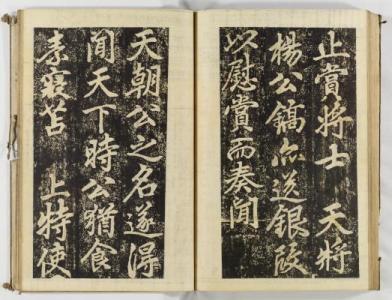 止當將士 天將
楊公鎬亦送銀段
以慰賚而奏聞
天朝公之名遂淂
聞天下時公猶食
素寢苫 上特使